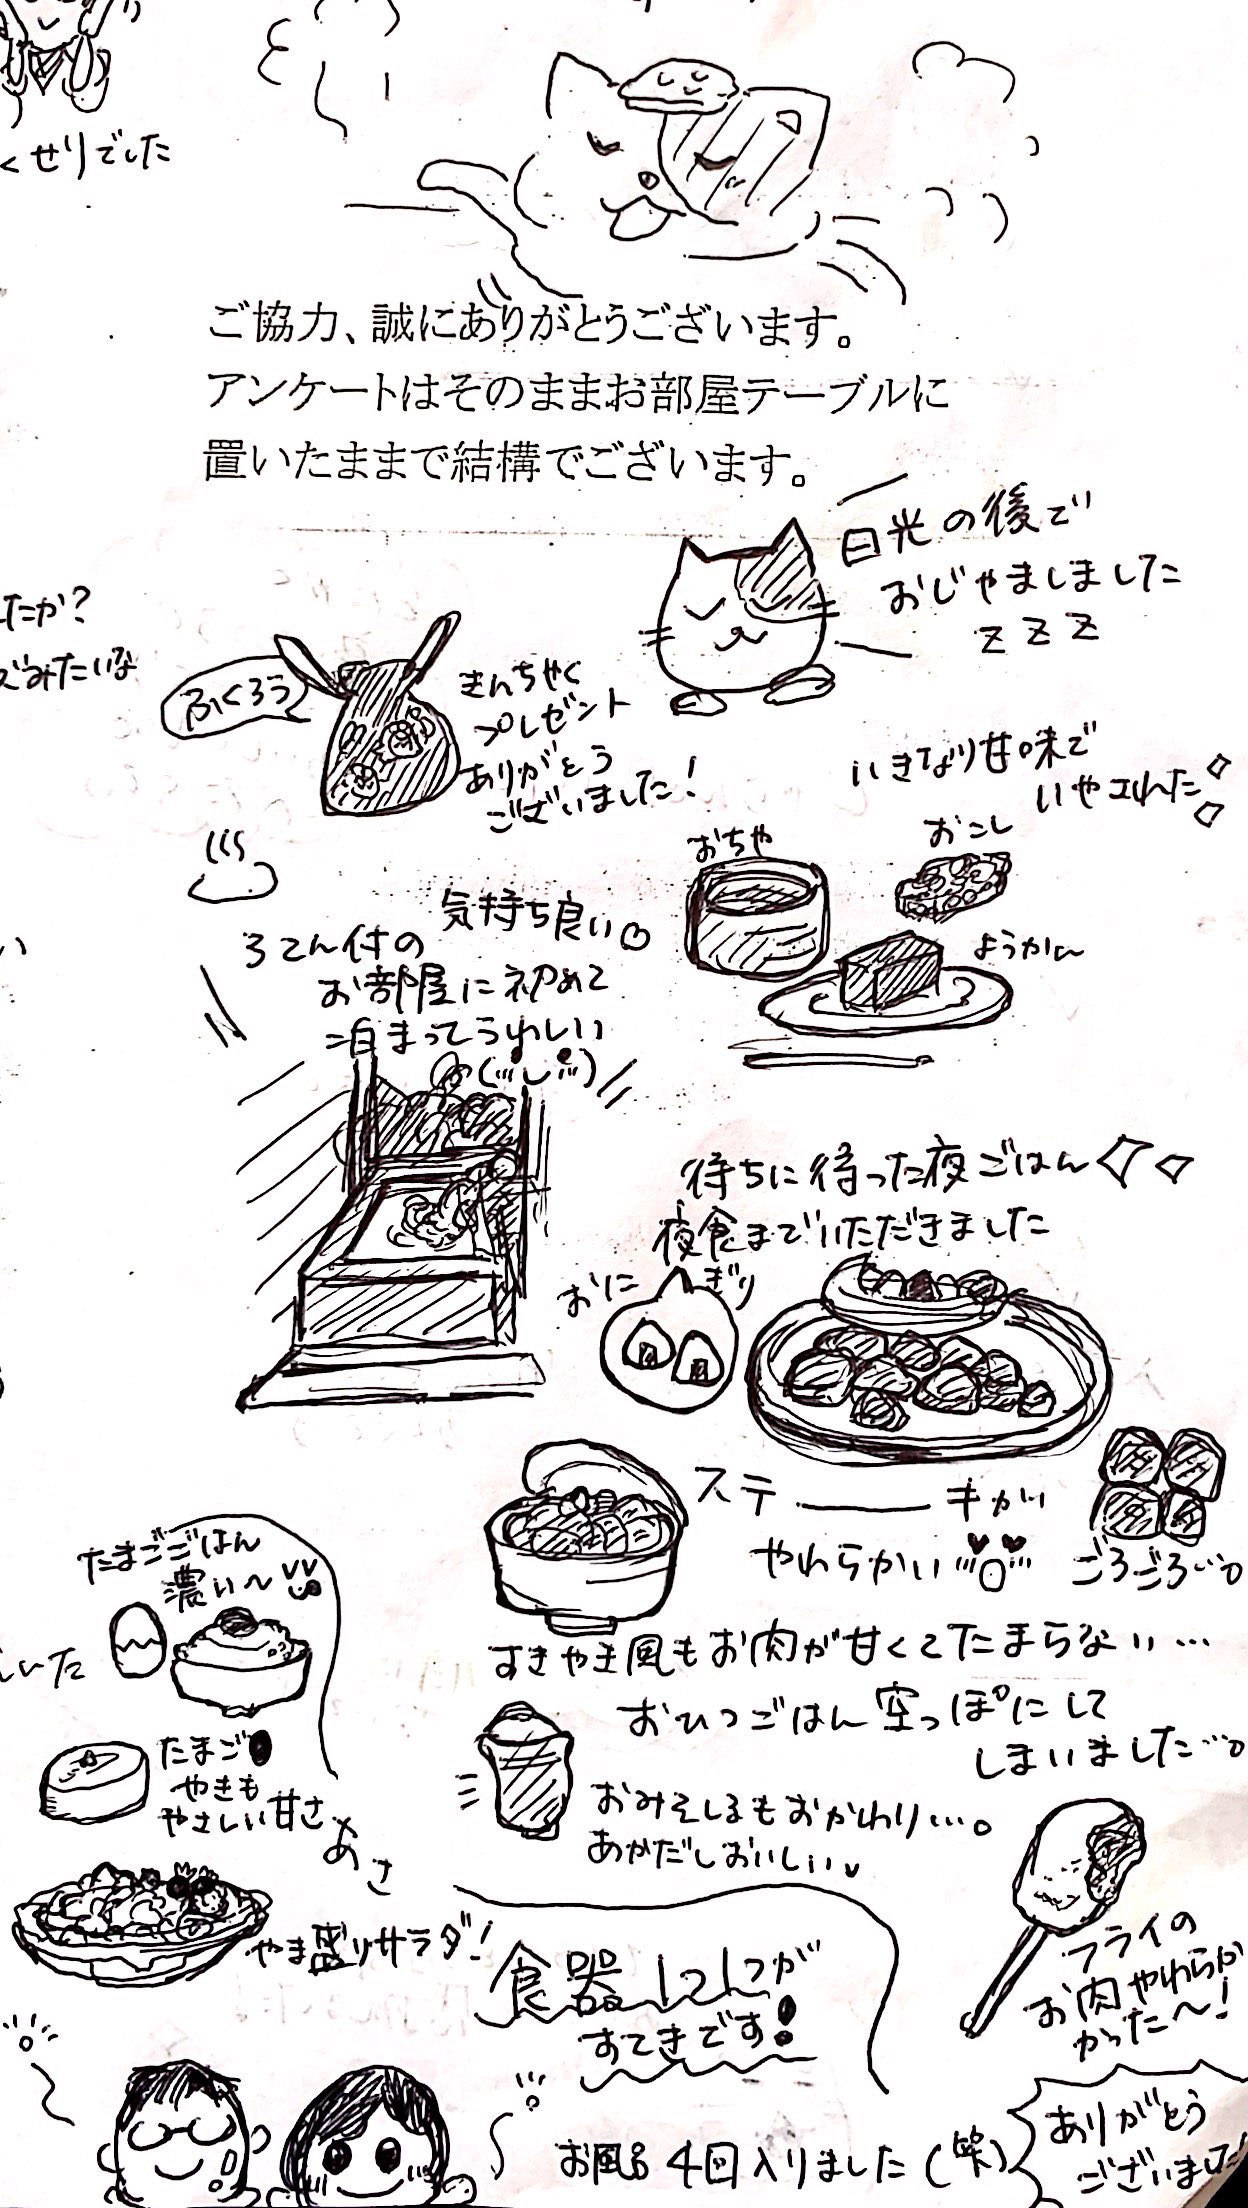 くせりでした
ご協力、誠にありがとうございます。
アンケートはそのままお部屋テーブルに
置いたままで結構でございます。
日光の後で
おじゃましました
zzz
たか?
みたいな
ふくろう
きんちゃく
プレゼント
ありがとう
ございました!
いきなり甘味で
いやされた
おちゃ
おこし
ようかん
気持ち良い
ろてん付の
お部屋に初めて
泊まってうれしい
待ちに待った夜ごはん
夜食までいただきました
おにぎり
ステーキが
やわらかい
ごろごろ
すきやき風もお肉が甘くてたまらない…
おひつごはん空っぽにして
しまいました…。
おみそしるもおかわり…。
あかだしおいしい
たまごごはん
濃い〜
いた
たまご
やきも
やさしい甘さ
あさ
やま盛りサラダ!
食器1つ1つが
すてきです!
フライの
お肉やわらか
かった〜!
お風呂4回入りました(笑)
ありがとう
ございました